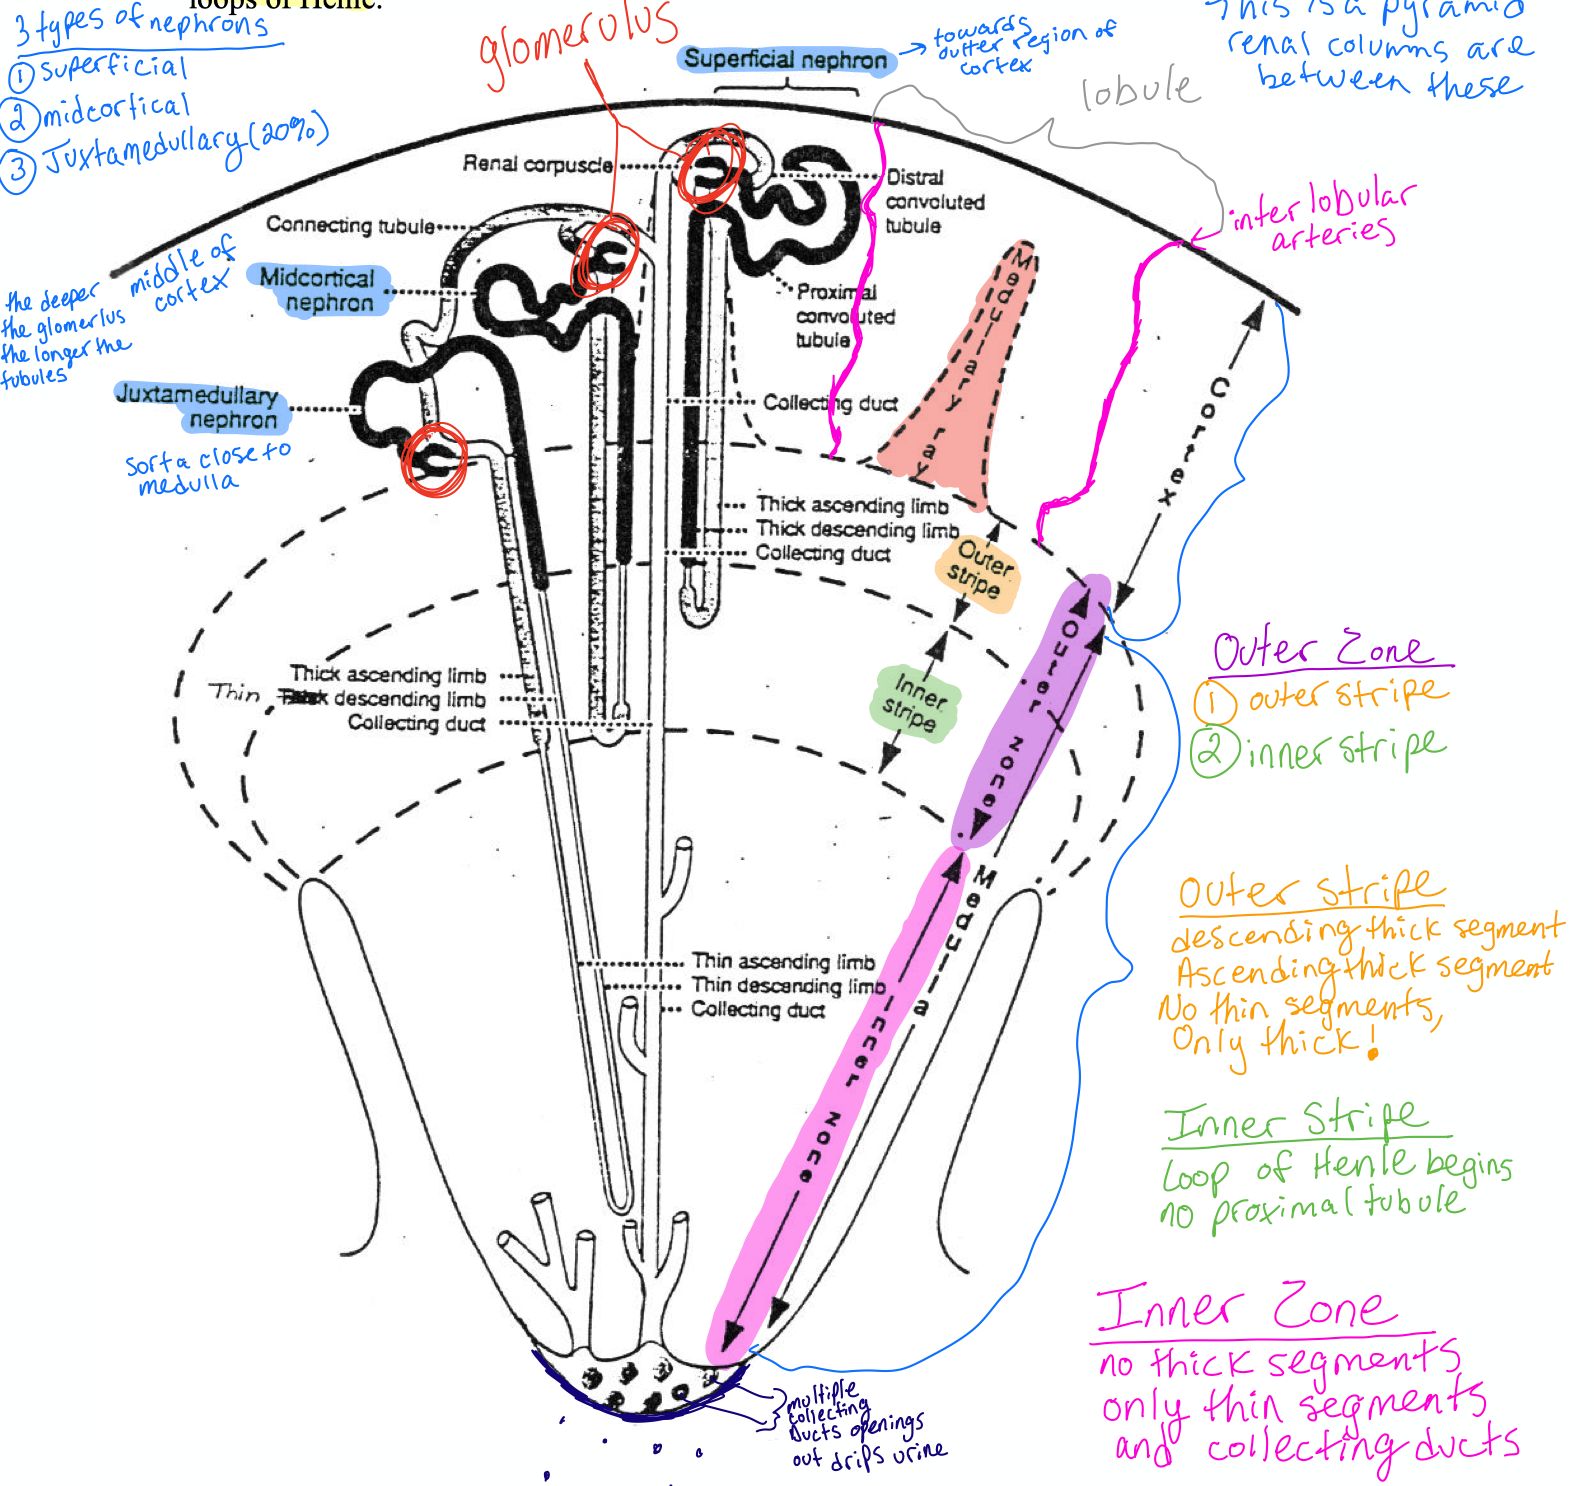 loops of Henle.
3 types of nephrons
① superficial
② midcortical
③ Juxtamedullary (20%)
glomerulus
Superficial nephron
→ towards
outter region of
cortex
This is a pyramid
renal columns are
between these
lobule
Renal corpuscle
Distral
convoluted
tubule
interlobular
arteries
Connecting tubule
middle of
cortex
Midcortical
nephron
the deeper
the glomerlus
the longer the
tubules
Proximal
convoluted
tubule
Medullary ray
Cortex
Juxtamedullary
nephron
Sorta close to
medulla
Collecting duct
Thick ascending limb
Thick descending limb
Collecting duct
Outer
stripe
Inner
stripe
Outer zone
Thick ascending limb
Thin Thick descending limb
Collecting duct
Outer Zone
① outer stripe
② inner stripe
Medulla
Thin ascending limb
Thin descending limb
Collecting duct
Inner zone
Outer Stripe
descending thick segment
Ascending thick segment
No thin segments,
Only thick!
Inner Stripe
Loop of Henle begins
no proximal tubule
Inner Zone
no thick segments
only thin segments
and collecting ducts
multiple
collecting
Ducts openings
out drips urine